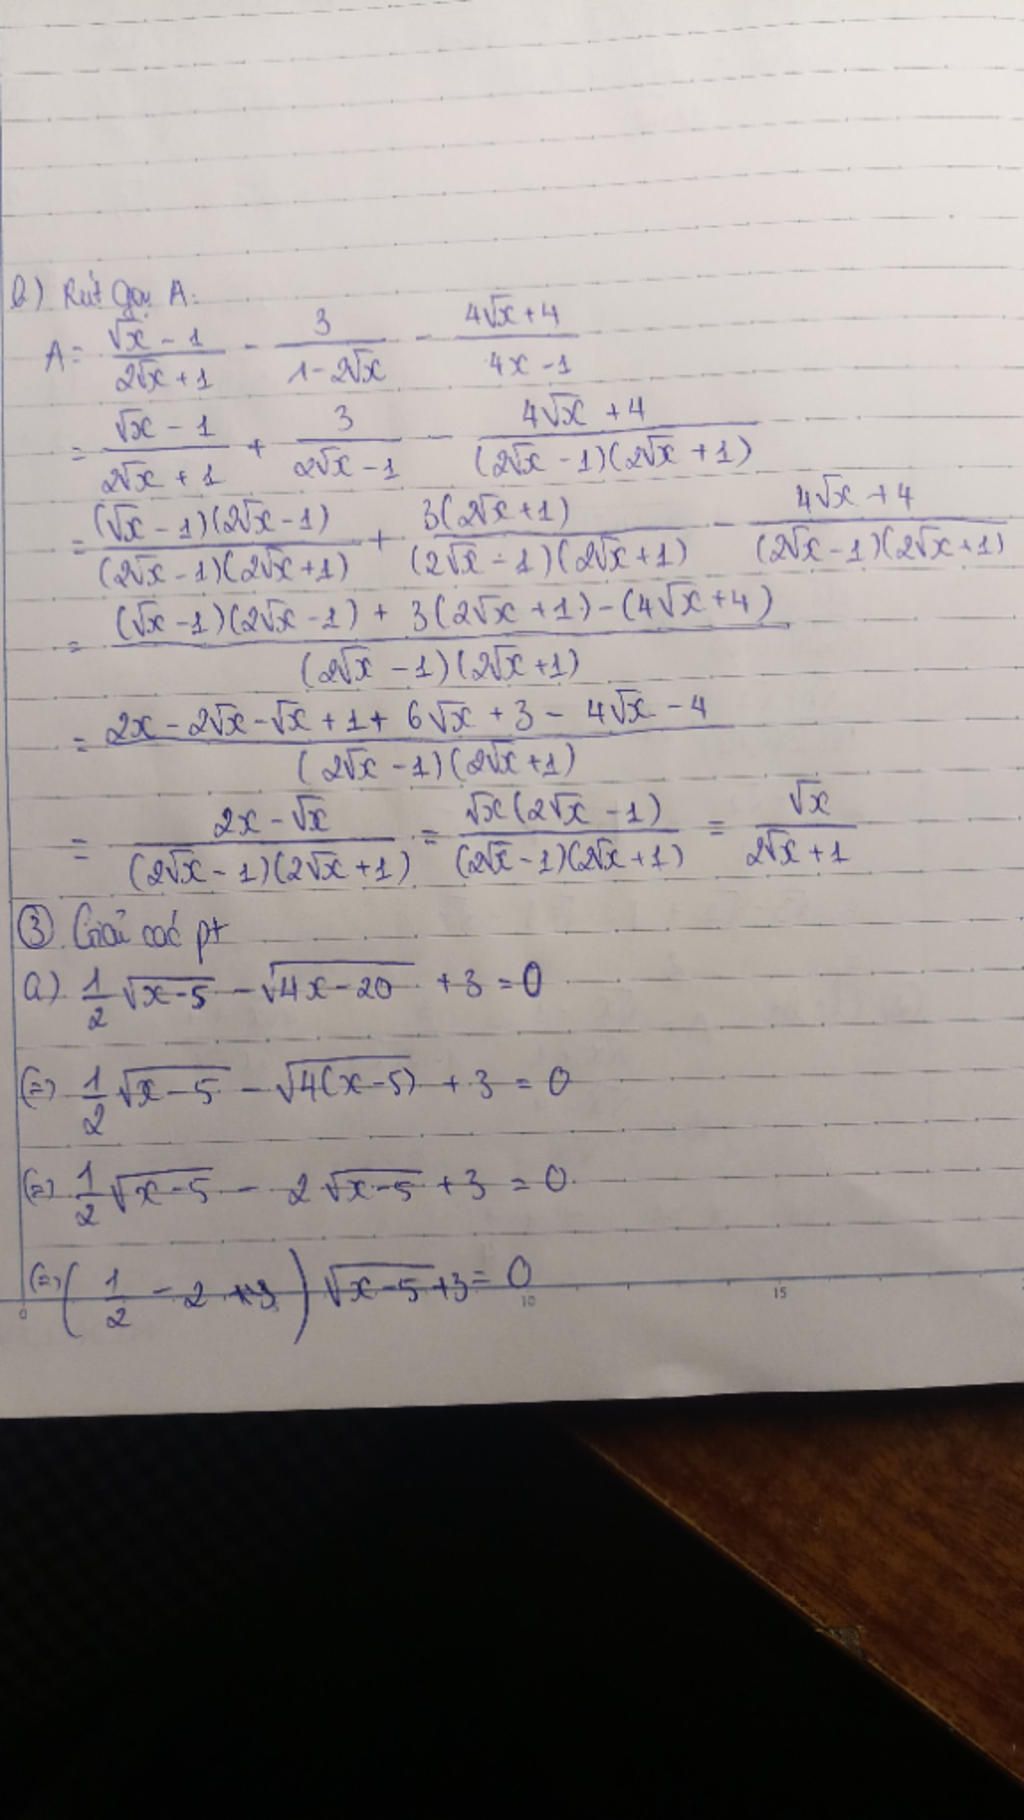 b) Rút gọn A:
A = (√x - 1)/(2√x + 1) - 3/(1 - 2√x) - (4√x + 4)/(4x - 1)
= (√x - 1)/(2√x + 1) + 3/(2√x - 1) - (4√x + 4)/((2√x - 1)(2√x + 1))
= ((√x - 1)(2√x - 1))/((2√x - 1)(2√x + 1)) + (3(2√x + 1))/((2√x - 1)(2√x + 1)) - (4√x + 4)/((2√x - 1)(2√x + 1))
= ((√x - 1)(2√x - 1) + 3(2√x + 1) - (4√x + 4))/((2√x - 1)(2√x + 1))
= (2x - 2√x - √x + 1 + 6√x + 3 - 4√x - 4)/((2√x - 1)(2√x + 1))
= (2x - √x)/((2√x - 1)(2√x + 1)) = (√x(2√x - 1))/((2√x - 1)(2√x + 1)) = √x/(2√x + 1)
③ Giải các pt
a) 1/2 √(x-5) - √(4x-20) + 3 = 0
(=) 1/2 √(x-5) - √(4(x-5)) + 3 = 0
(=) 1/2 √(x-5) - 2√(x-5) + 3 = 0
(=) (1/2 - 2 +3) √(x-5) + 3 = 0
0 10 15